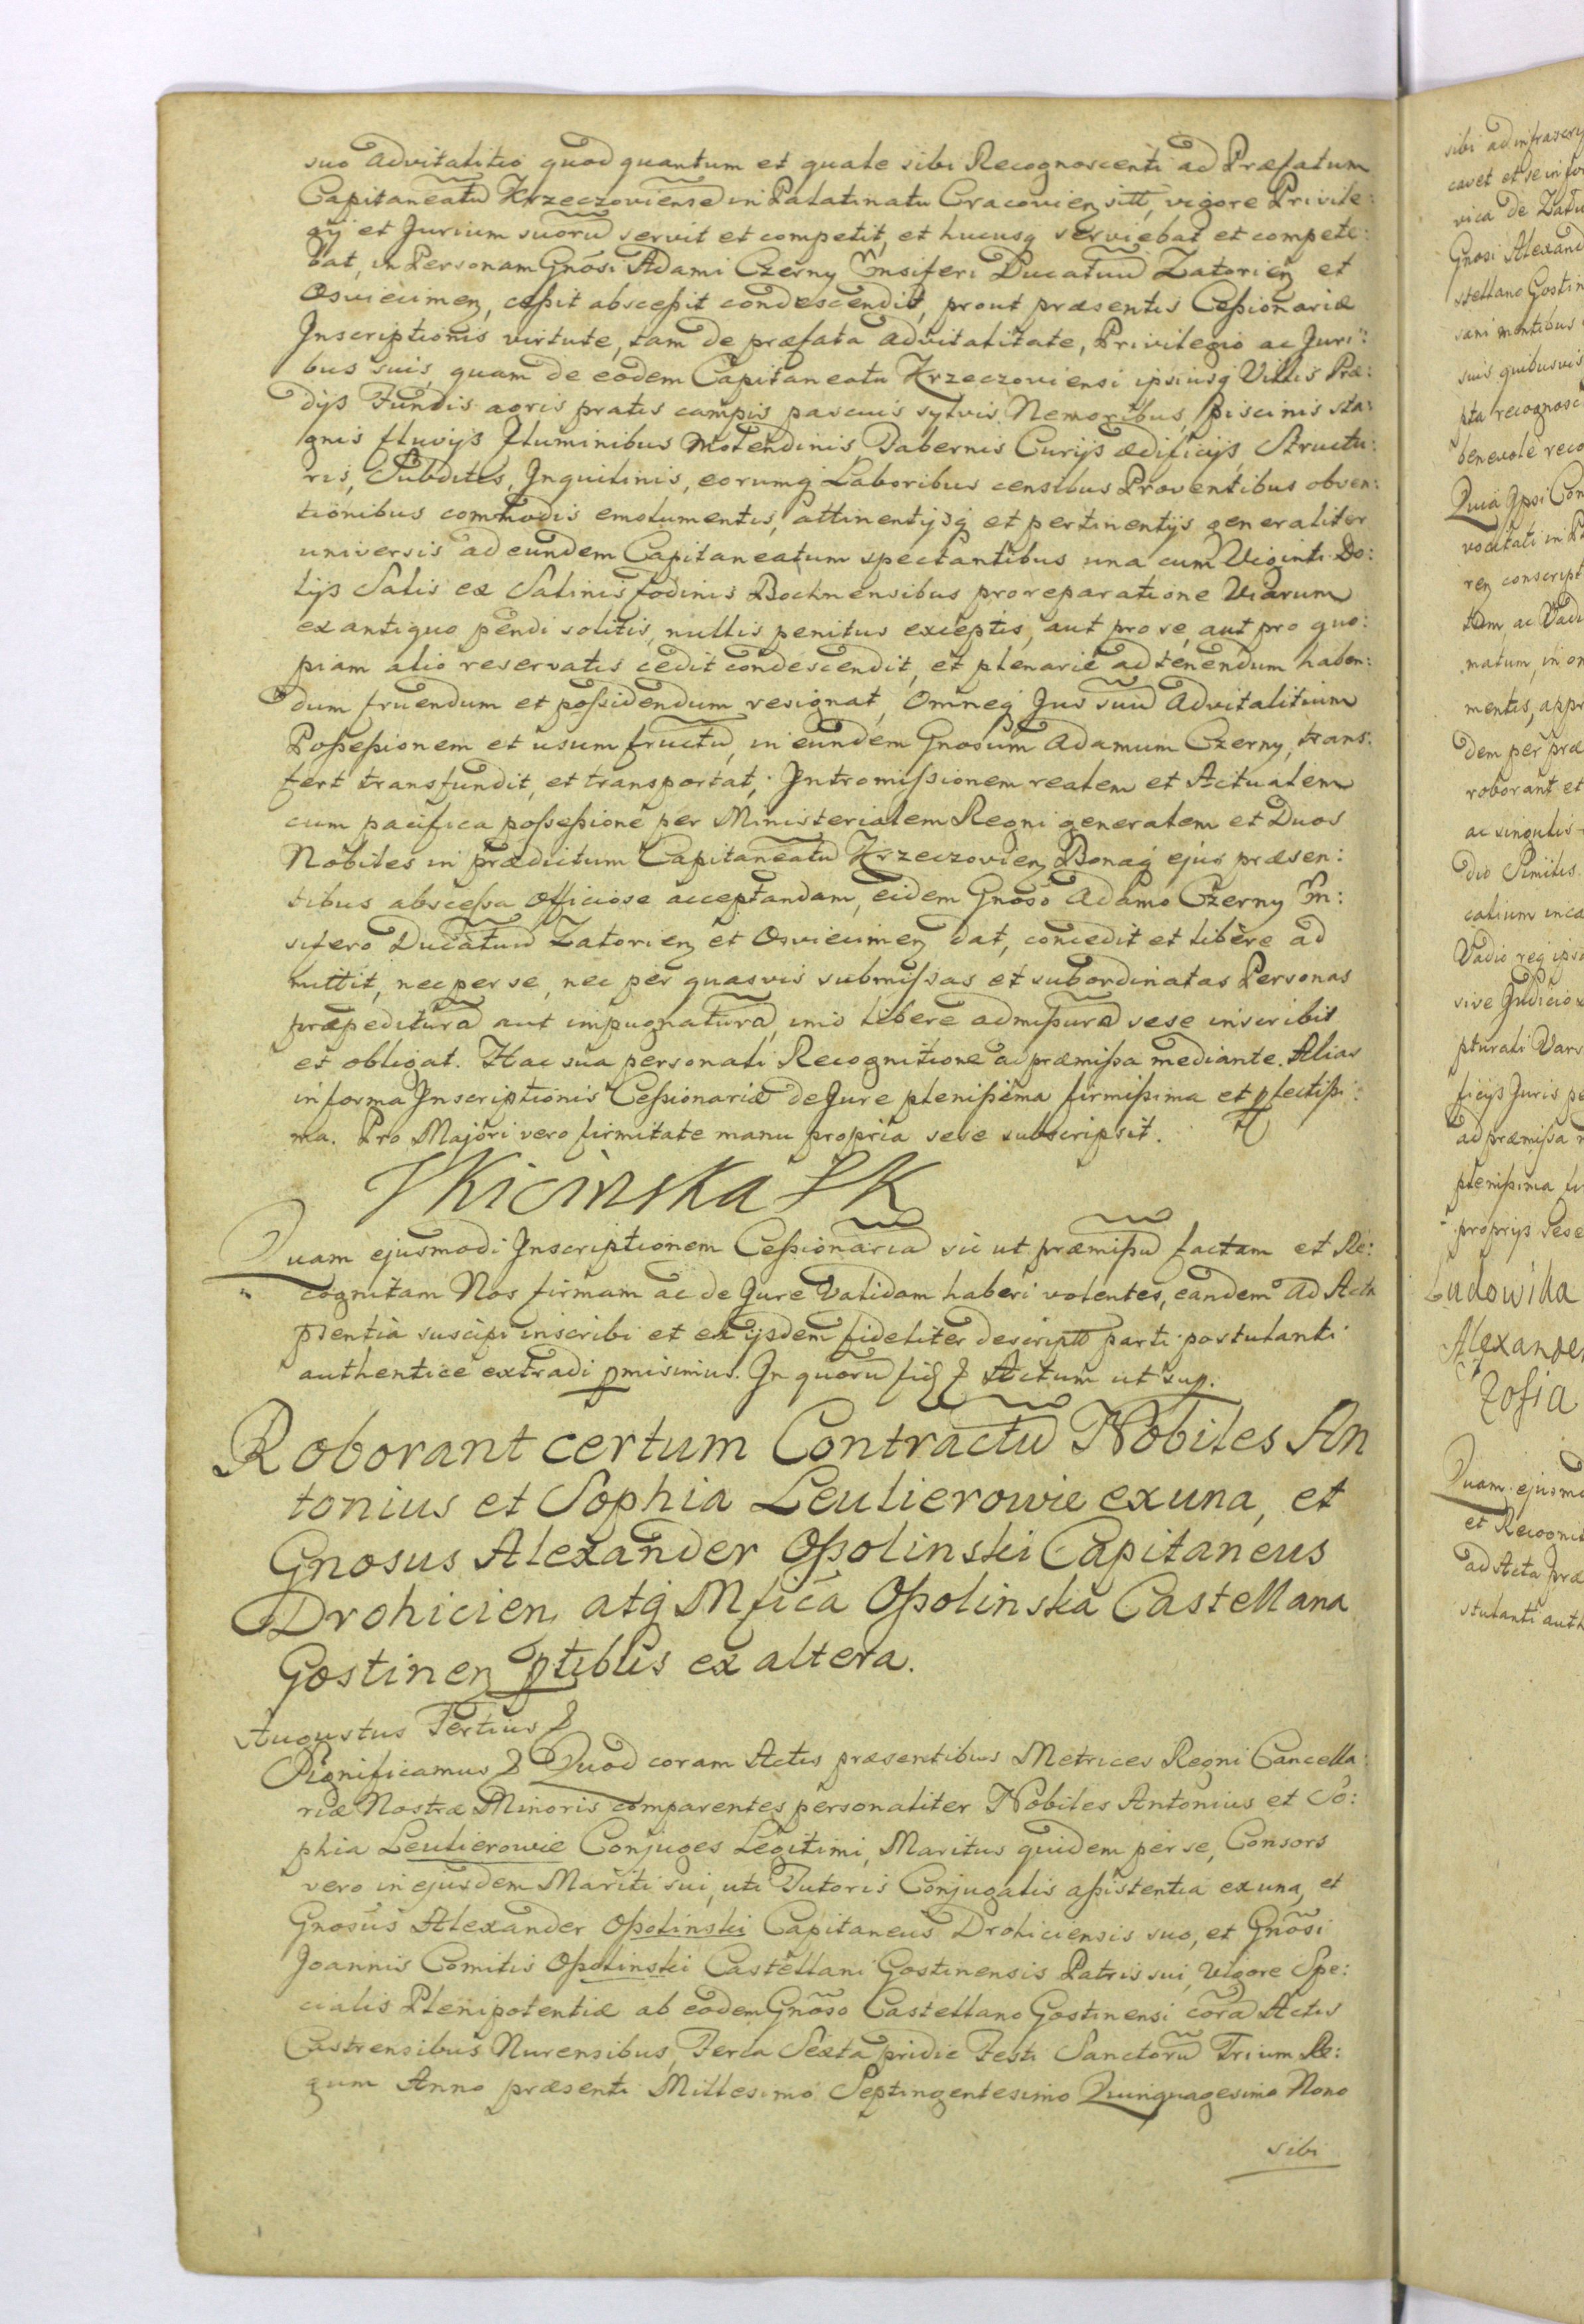 suo Advitalitio quod quantum et quale sibi Recognoscenti ad Præfatum
Capitaneatũ Krzeczoviense in Palatinatu Cracovien sitt, vigore Privile:
gij et Jurium suorũ servit et competit, et hucusq serviebat et compete:
bat, in Personam Gnosi Adami Czerny Ensiferi Ducatuũ Zatorien et
Osviecimen, cessit abscessit condescendit, prout præsentis Cessionariæ
Inscriptionis virtute, tam de præfata advitalitate, Privilegio ac Juri:
bus suis, quam de eodem Capitaneatu Krzeczoviensi ipsiusq Villis Præ:
dijs Fundis agris pratis campis pascuis sylvis Nemoribus, piscinis sta:
gnis fluvijs fluminibus Molendinis, Tabernis Curijs ædificijs, Structu:
ris, Subditis, Inquilinis, eorumq Laboribus censibus Proventibus obven:
tionibus commodis emolumentis, attinentijsq et pertinentijs generaliter
universis ad eundem Capitaneatum spectantibus una cum Viginti Do:
lijs Salis ex Salinis fodinis Bochnensibus pro reparatione Viarum
ex antiquo pendi solitis, nullis penitus exceptis, aut pro se, aut pro quo:
piam alio reservatis cedit condescendit, et plenarie ad tenendum haben:
dum fruendum et possidendum resignat, Omneq Jus suũ Advitalitium
Possessionem et usum fructũ, in eundem Gnosum Adamum Czerny, trans:
fert transfundit, et transportat, Intromissionem realem et Actualem
cum pacifica possessione per Ministerialem Regni generalem et Duos
Nobiles in prædictum Capitaneatũ Krzeczovien Bonaq ejus præsen:
tibus abscessa Officiose acceptandam, eidem Gnoso Adamo Czerny En:
sifero Ducatuũ Zatorien et Osviecimen dat, concedit et libere ad
mittit, nec per se, nec per quasvis submissas et subordinatas Personas
præpeditura aut impugnatura, imo libere admissura sese inscribit
et obligat. Hac sua personali Recognitione ad præmissa mediante. Alias
in forma Inscriptionis Cessionariæ de Jure plenissima firmissima et pfectissi:
ma. Pro Majori vero firmitate manu propria sese subscripsit.
Kicinska SK
Quam ejusmodi Inscriptionem Cessionariã sic ut præmissũ factam et Re:
cognitam Nos firmam ac de Jure Validam haberi volentes, eandem ad Acta
pſentia suscipi inscribi et ex ijsdem fideliter descriptã parti postulanti
authentice extradi pmisimus. In quorũ fid & Actum ut sup.
Roborant certum Contractũ Nobiles An
tonius et Sophia Leulierowie ex una, et
Gnosus Alexander Ossolinski Capitaneus
Drohicien, atq Mfica Ossolinska Castellana
Gostinen ptibus ex altera.
Augustus Tertius &
Significamus & Quod coram Actis præsentibus Metrices Regni Cancella:
riæ Nostræ Minoris comparentes personaliter Nobiles Antonius et So:
phia Leulierowie Conjuges Legitimi, Maritus quidem per se, Consors
vero in ejusdem Mariti sui, uti Tutoris Conjugalis assistentia ex una, et
Gnosus Alexander Ossolinski Capitaneus Drohiciensis suo, et Gnosi
Joannis Comitis Ossolinski Castellani Gostinensis Patris sui, vigore Spe:
cialis Plenipotentiæ ab eodem Gnoso Castellano Gostinensi corã Actis
Castrensibus Nurensibus, Feria Sexta pridie Festi Sanctorũ Trium Re:
gum Anno præsenti Millesimo Septingentesimo Quinquagesimo Nono
sibi
sibi ad infrascrip
cavet et se in fo
vica de Zału
Gnosi Alexand
stellano Gostin
sani mentibus
suis quibusvis
pta recognosc
benevole reco
Quia Ipsi Con
vocitati in P
ren conscript
tum, ac Vadi
matum, in om
mentis, appr
dem per præ
roborant et
ac singulis
dio Similis
calium inca
Vadio req ipso
sive Judicio
pturali Vars
ficijs Juris pe
ad præmissa
plenissima fi
proprijs Sese
Ludowika
Alexander
Zofia
Quam ejusmo
et Recognit
ad Acta Præ
stulanti auth